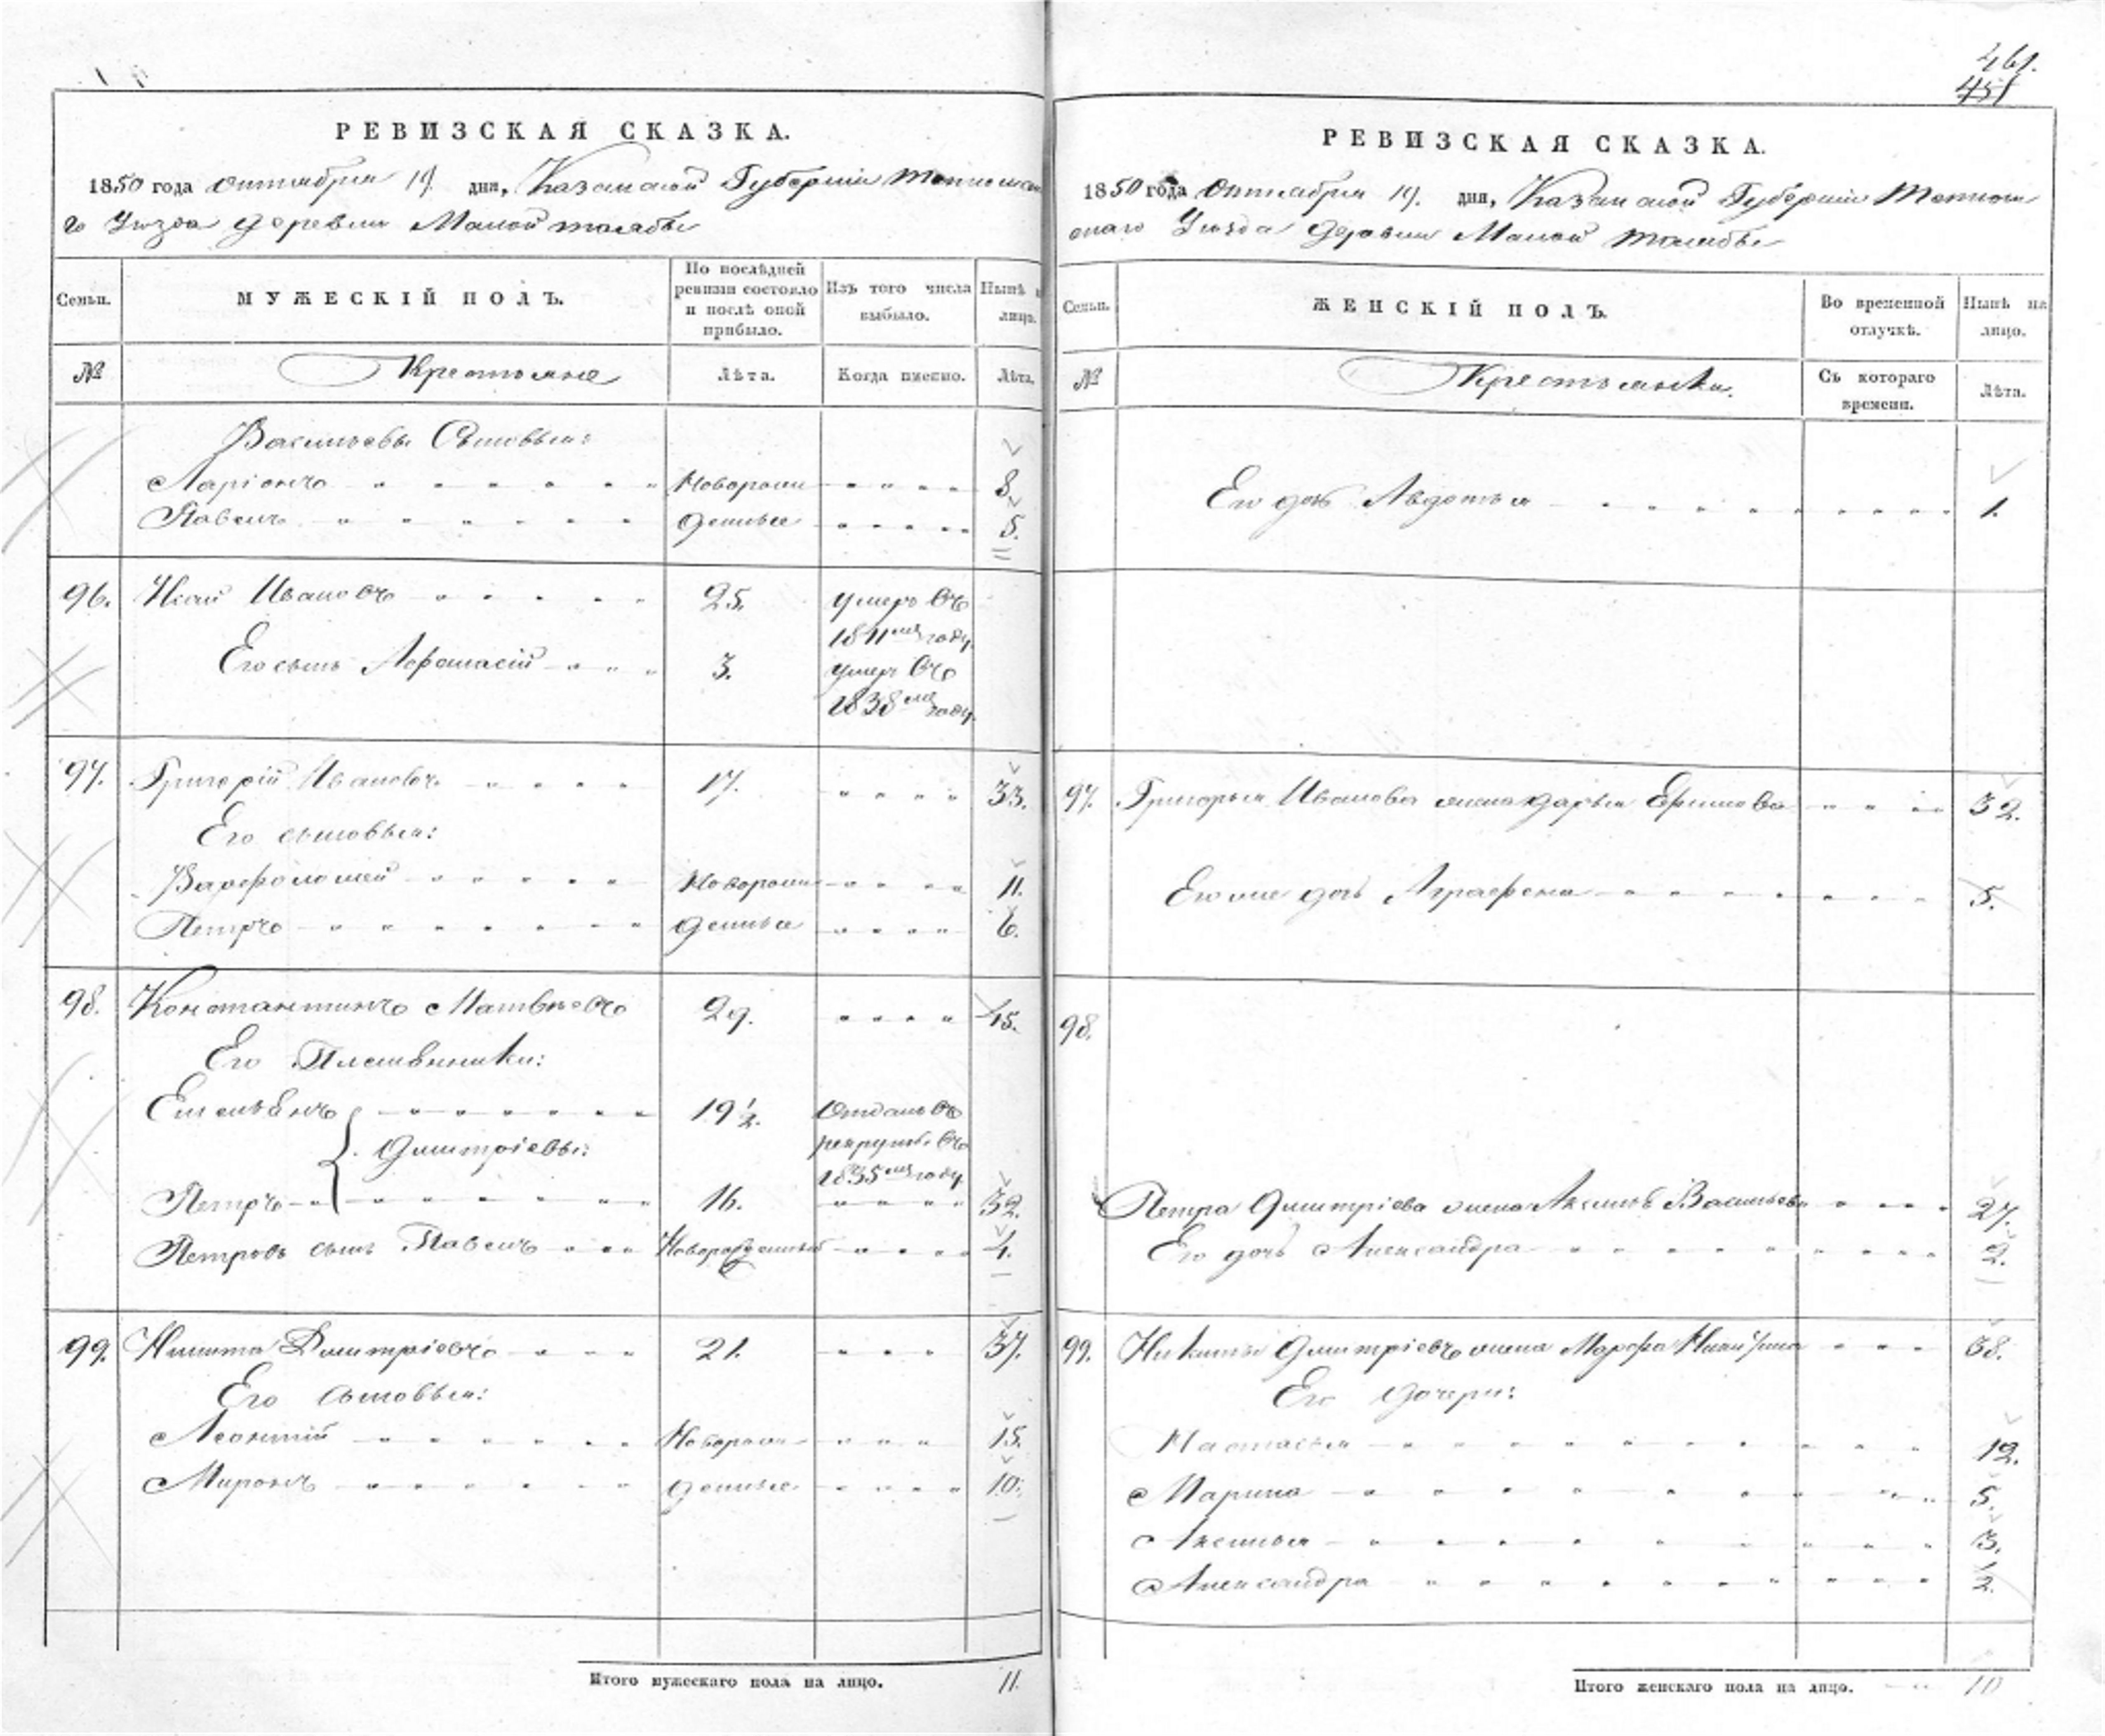 461.
451
РЕВИЗСКАЯ СКАЗКА.
1850 года Октября 19 дня, Казанской Губернии
го Уезда деревни Малой
Семьи. МУЖЕСКІЙ ПОЛЪ. По послѣдней ревизіи состояло и послѣ оной прибыло. Изъ того числа выбыло. Нынѣ на лицо.
№ Крестьяне Лѣта. Когда именно. Лѣта.
Васильевы Сыновья:
Ларіонъ Новорож 8.
Павелъ денные 5.
96. Ивановъ 25. умеръ въ
1841 мъ году.
Его сынъ Афанасій 3. умеръ въ
1838 мъ году.
97. Григорій Ивановъ 17. 33.
Его сыновья:
Варфоломей Новорож 11.
Петръ денные 6.
98. Константинъ Матвѣевъ 29. 45.
Его Племянники:
Емельянъ 19 1/2. Отданъ въ
Дмитріевы: рекруты въ
1835 мъ году.
Петръ 16. 32.
Петровъ сынъ Павелъ Новорожденный 4.
99. Никита Дмитріевъ 21. 37.
Его сыновья:
Леонтій Новорож 15.
Миронъ денные 10.
Итого мужескаго пола на лицо. 11.
РЕВИЗСКАЯ СКАЗКА.
1850 года Октября 19 дня, Казанской Губернии
скаго Уезда Деревни Малой
Семьи. ЖЕНСКІЙ ПОЛЪ. Во временной отлучкѣ. Нынѣ на лицо.
№ Крестьянки. Съ котораго времени. Лѣта.
Его дочь Авдотья 1.
97. Григорья Иванова жена Дарья Ефимова 32.
Его же дочь Аграфена 5.
98.
Петра Дмитріева жена Васильева 27.
Его дочь Александра 2.
99. Никиты Дмитріевъ жена Марфа 38.
Его дочери:
Настасья 12.
Марина 5.
Аксинья 3.
Александра
Итого женскаго пола на лицо. 10